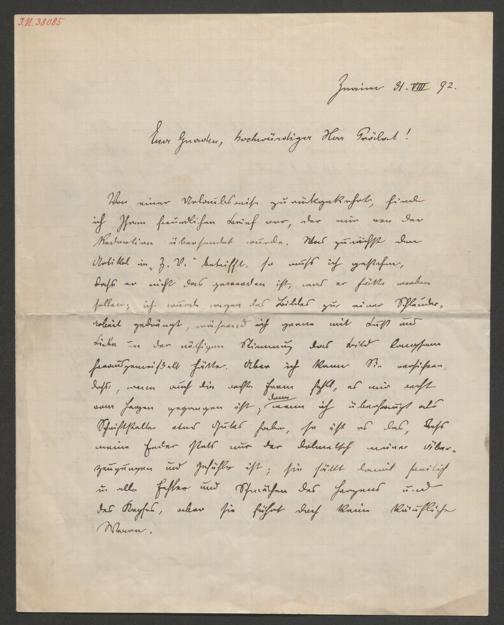 I.N. 38085
Znaim 31. VIII 92.
Euer Gnaden, hochwürdiger Herr Prälat!
Von einer Urlaubsreise zurückgekehrt, finde
ich Ihren freundlichen Brief vor, der mir von der
Redaction übersendet wurde. Was zunächst den
Artikel in „Z. V." betrifft, so muss ich gestehen,
dass er nicht das geworden ist, was er hätte werden
sollen; ich wurde wegen des Bildes zu einer Schleuder-
arbeit gedrängt, während ich gerne mit Lust und
Liebe in der nöthigen Stimmung das Bild langsam
herausgemeißelt hätte. Aber ich kann Sie versichern,
dass, wenn auch die rechte Form fehlt, es mir recht
vom Herzen gegangen ist; denn wenn ich überhaupt als
Schriftsteller etwas Gutes habe, so ist es das, dass
meine Feder stets nur der Dolmetsch meiner Über-
zeugungen und Gefühle ist; sie fällt damit freilich
in alle Fehler und Schwächen des Herzens und
des Kopfes, aber sie führt doch keine käufliche
Ware.